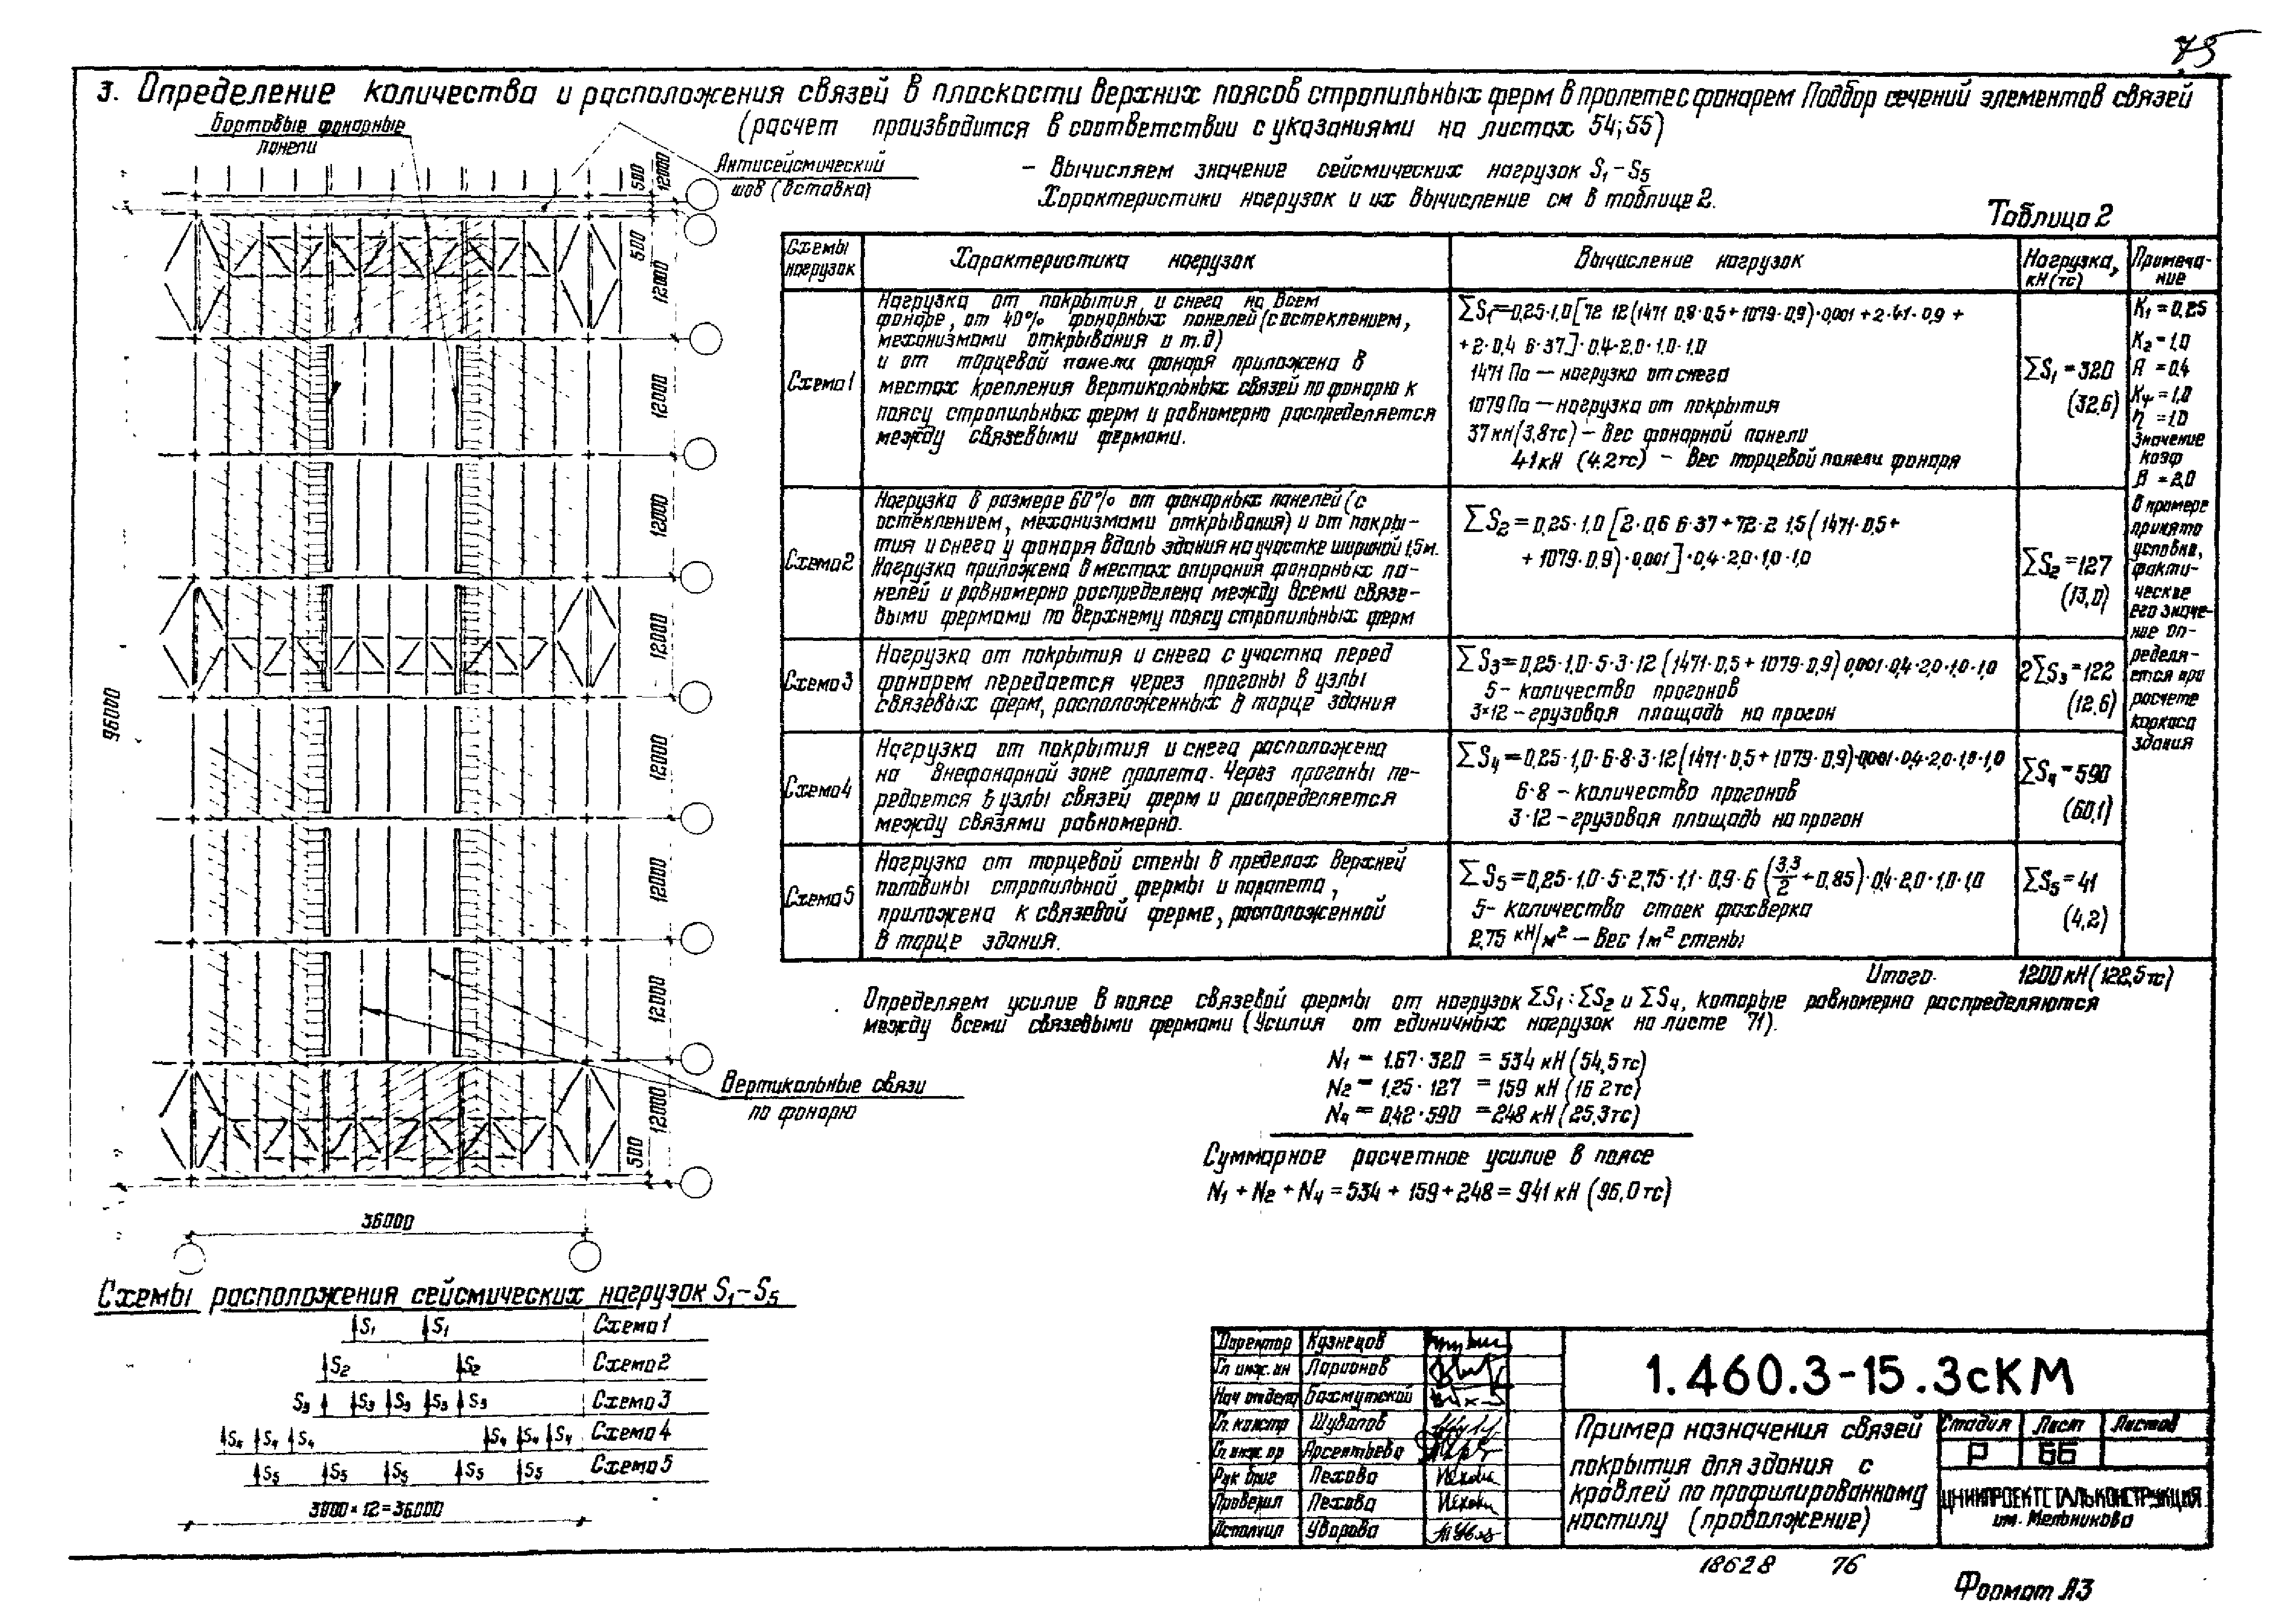 75
3. Определение количества и расположения связей в плоскости верхних поясов стропильных ферм в пролете с фонарем Подбор сечений элементов связей
(расчет производится в соответствии с указаниями на листах 54; 55)
Бортовые фонарные
панели
Антисейсмический
шов (вставка)
– Вычисляем значение сейсмических нагрузок S₁–S₅
Характеристики нагрузок и их вычисление см в таблице 2.
Таблица 2
Схемы нагрузок
Характеристика нагрузок
Вычисление нагрузок
Нагрузка, кН (тс)
Примечание
Схема 1
Нагрузка от покрытия и снега на всем
фонаре, от 40% фонарных панелей (с остеклением,
механизмами открывания и т.д)
и от торцевой панели фонаря приложена в
местах крепления вертикальных связей по фонарю к
поясу стропильных ферм и равномерно распределяется
между связевыми фермами.
ΣS₁=0,25·1,0[72 12(1471 0,8·0,5+1079·0,9)·0,001+2·41·0,9+
+2·0,4 6·37]·0,4·2,0·1,0·1,0
1471 Па – нагрузка от снега
1079 Па – нагрузка от покрытия
37 кН (3,8тс) – вес фонарной панели
41 кН (4.2тс) – вес торцевой панели фонаря
ΣS₁=320
(32,6)
K₁=0,25
K₂=1,0
A=0,4
Kψ=1,0
η=1,0
Значение
коэф
β=2,0
В примере
принято
условно,
фактически
ческве
его значе-
ние оп-
ределя-
ется при
расчете
каркаса
здания
Схема 2
Нагрузка в размере 60% от фонарных панелей (с
остеклением, механизмами открывания) и от покры-
тия и снега у фонаря вдоль здания на участке шириной 1,5м.
Нагрузка приложена в местах опирания фонарных па-
нелей и равномерно распределена между всеми связе-
выми фермами по верхнему поясу стропильных ферм
ΣS₂=0,25·1,0[2·0,6 6·37+72·2 1,5(1471·0,5+
+1079·0,9)·0,001]·0,4·2,0·1,0·1,0
ΣS₂=127
(13,0)
Схема 3
Нагрузка от покрытия и снега с участка перед
фонарем передается через прогоны в узлы
связевых ферм, расположенных в торце здания
ΣS₃=0,25·1,0·5·3·12(1471·0,5+1079·0,9)0,001·0,4·2,0·1,0·1,0
5- количество прогонов
3×12 – грузовая площадь на прогон
2ΣS₃=122
(12.6)
Схема 4
Нагрузка от покрытия и снега расположена
на внефонарной зоне пролета. Через прогоны пе-
редается в узлы связей ферм и распределяется
между связями равномерно.
ΣS₄=0,25·1,0·6·8·3·12(1471·0,5+1079·0,9)·0,001·0,4·2,0·1,0·1,0
6·8 – количество прогонов
3·12 – грузовая площадь на прогон
ΣS₄=590
(60,1)
Схема 5
Нагрузка от торцевой стены в пределах верхней
половины стропильной фермы и парапета,
приложена к связевой ферме, расположенной
в торце здания.
ΣS₅=0,25·1,0·5·2,75·1,1·0,9·6(3,3/2+0,85)·0,4·2,0·1,0·1,0
5- количество стоек фахверка
2,75 кН/м² – вес 1м² стены
ΣS₅=41
(4,2)
Итого- 1200 кН (122,5тс)
Определяем усилие в поясе связевой фермы от нагрузок ΣS₁; ΣS₂ и ΣS₄, которые равномерно распределяются
между всеми связевыми фермами (Усилия от единичных нагрузок на листе 71).
N₁ = 1.67·320 = 534 кН (54,5тс)
N₂ = 1,25·127 = 159 кН (16 2тс)
N₄ = 0,42·590 = 248 кН (25,3тс)
Суммарное расчетное усилие в поясе
N₁+N₂+N₄=534+159+248=941 кН (96,0тс)
500
12000
500
12000
12000
12000
12000
12000
12000
12000
12000
500
96000
36000
Вертикальные связи
по фонарю
Схемы расположения сейсмических нагрузок S₁–S₅
S₁ S₁ Схема 1
S₂ S₂ Схема 2
S₃ S₃ S₃ S₃ S₃ Схема 3
S₄ S₄ S₄ S₄ S₄ S₄ Схема 4
S₅ S₅ S₅ S₅ S₅ Схема 5
3000×12=36000
Директор Кузнецов
Гл инж. ин Ларионов
Нач отдела Бахмутский
Гл. констр Шувалов
Гл. инж. пр Арсентьева
Рук бриг Пехова
Проверил Пехова
Исполнил Уварова
1.460.3-15.3сКМ
Пример назначения связей
покрытия для здания с
кровлей по профилированному
настилу (продолжение)
Стадия Лист Листов
Р 66
ЦНИИПРОЕКТСТАЛЬКОНСТРУКЦИЯ
им. Мельникова
18628 76
Формат А3